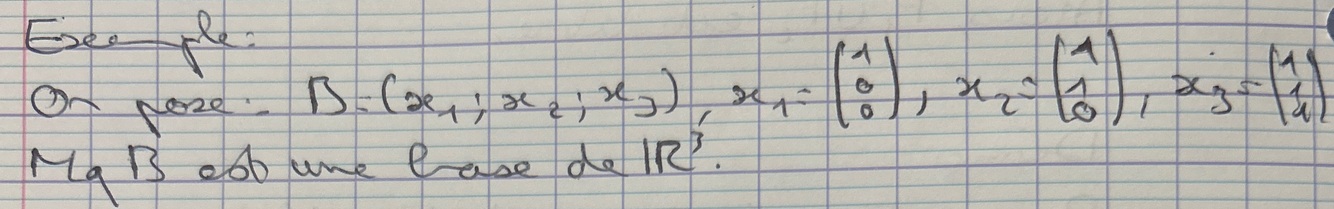 Exemple:
On pose: B=(x₁; x₂; x₃), x₁=(1 0 0), x₂=(1 1 0), x₃=(1 1 1)
Mq B est une base de ℝ³.